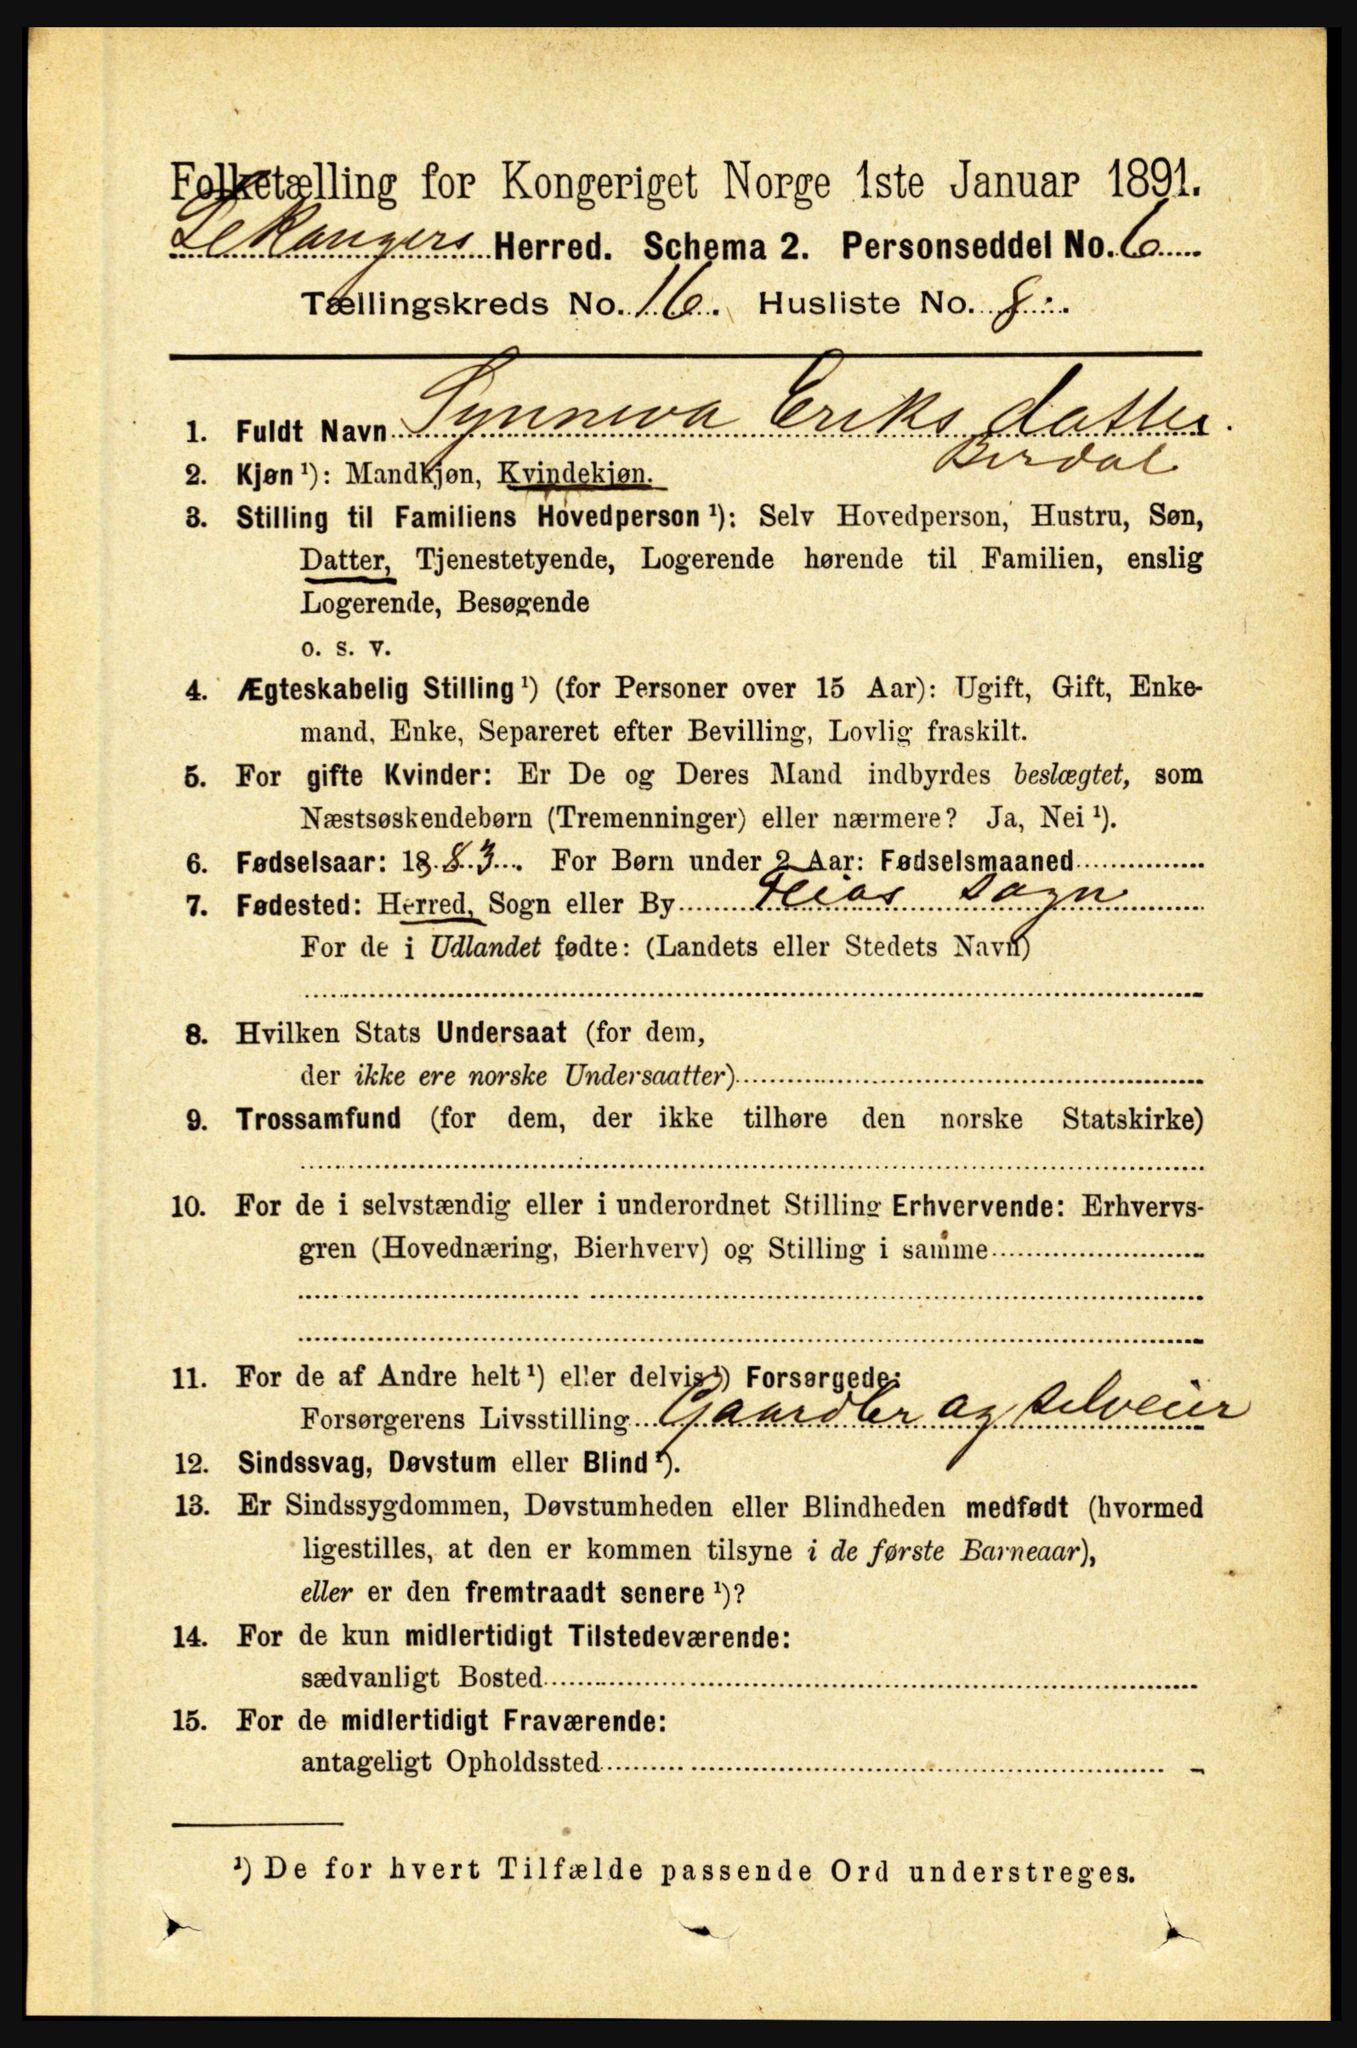 Folketælling for Kongeriget Norge 1ste Januar 1891.
Lekangers Herred. Schema 2. Personseddel No. 6
Tællingskreds No. 16. Husliste No. 8.
1. Fuldt Navn Synneva Eriks datter.
Berdal
2. Kjøn¹): Mandkjøn, Kvindekjøn.
3. Stilling til Familiens Hovedperson¹): Selv Hovedperson, Hustru, Søn,
Datter, Tjenestetyende, Logerende hørende til Familien, enslig
Logerende, Besøgende
o. s. v.
4. Ægteskabelig Stilling¹) (for Personer over 15 Aar): Ugift, Gift, Enke-
mand, Enke, Separeret efter Bevilling, Lovlig fraskilt.
5. For gifte Kvinder: Er De og Deres Mand indbyrdes beslægtet, som
Næstsøskendebørn (Tremenninger) eller nærmere? Ja, Nei¹).
6. Fødselsaar: 1883. For Børn under 2 Aar: Fødselsmaaned
7. Fødested: Herred, Sogn eller By Feios Sogn
For de i Udlandet fødte: (Landets eller Stedets Navn)
8. Hvilken Stats Undersaat (for dem,
der ikke ere norske Undersaatter)
9. Trossamfund (for dem, der ikke tilhøre den norske Statskirke)
10. For de i selvstændig eller i underordnet Stilling Erhvervende: Erhvervs-
gren (Hovednæring, Bierhverv) og Stilling i samme
11. For de af Andre helt¹) eller delvis¹) Forsørgede:
Forsørgerens Livsstilling Gaardbr og selveier
12. Sindssvag, Døvstum eller Blind¹).
13. Er Sindssygdommen, Døvstumheden eller Blindheden medfødt (hvormed
ligestilles, at den er kommen tilsyne i de første Barneaar),
eller er den fremtraadt senere¹)?
14. For de kun midlertidigt Tilstedeværende:
sædvanligt Bosted
15. For de midlertidigt Fraværende:
antageligt Opholdssted
¹) De for hvert Tilfælde passende Ord understreges.